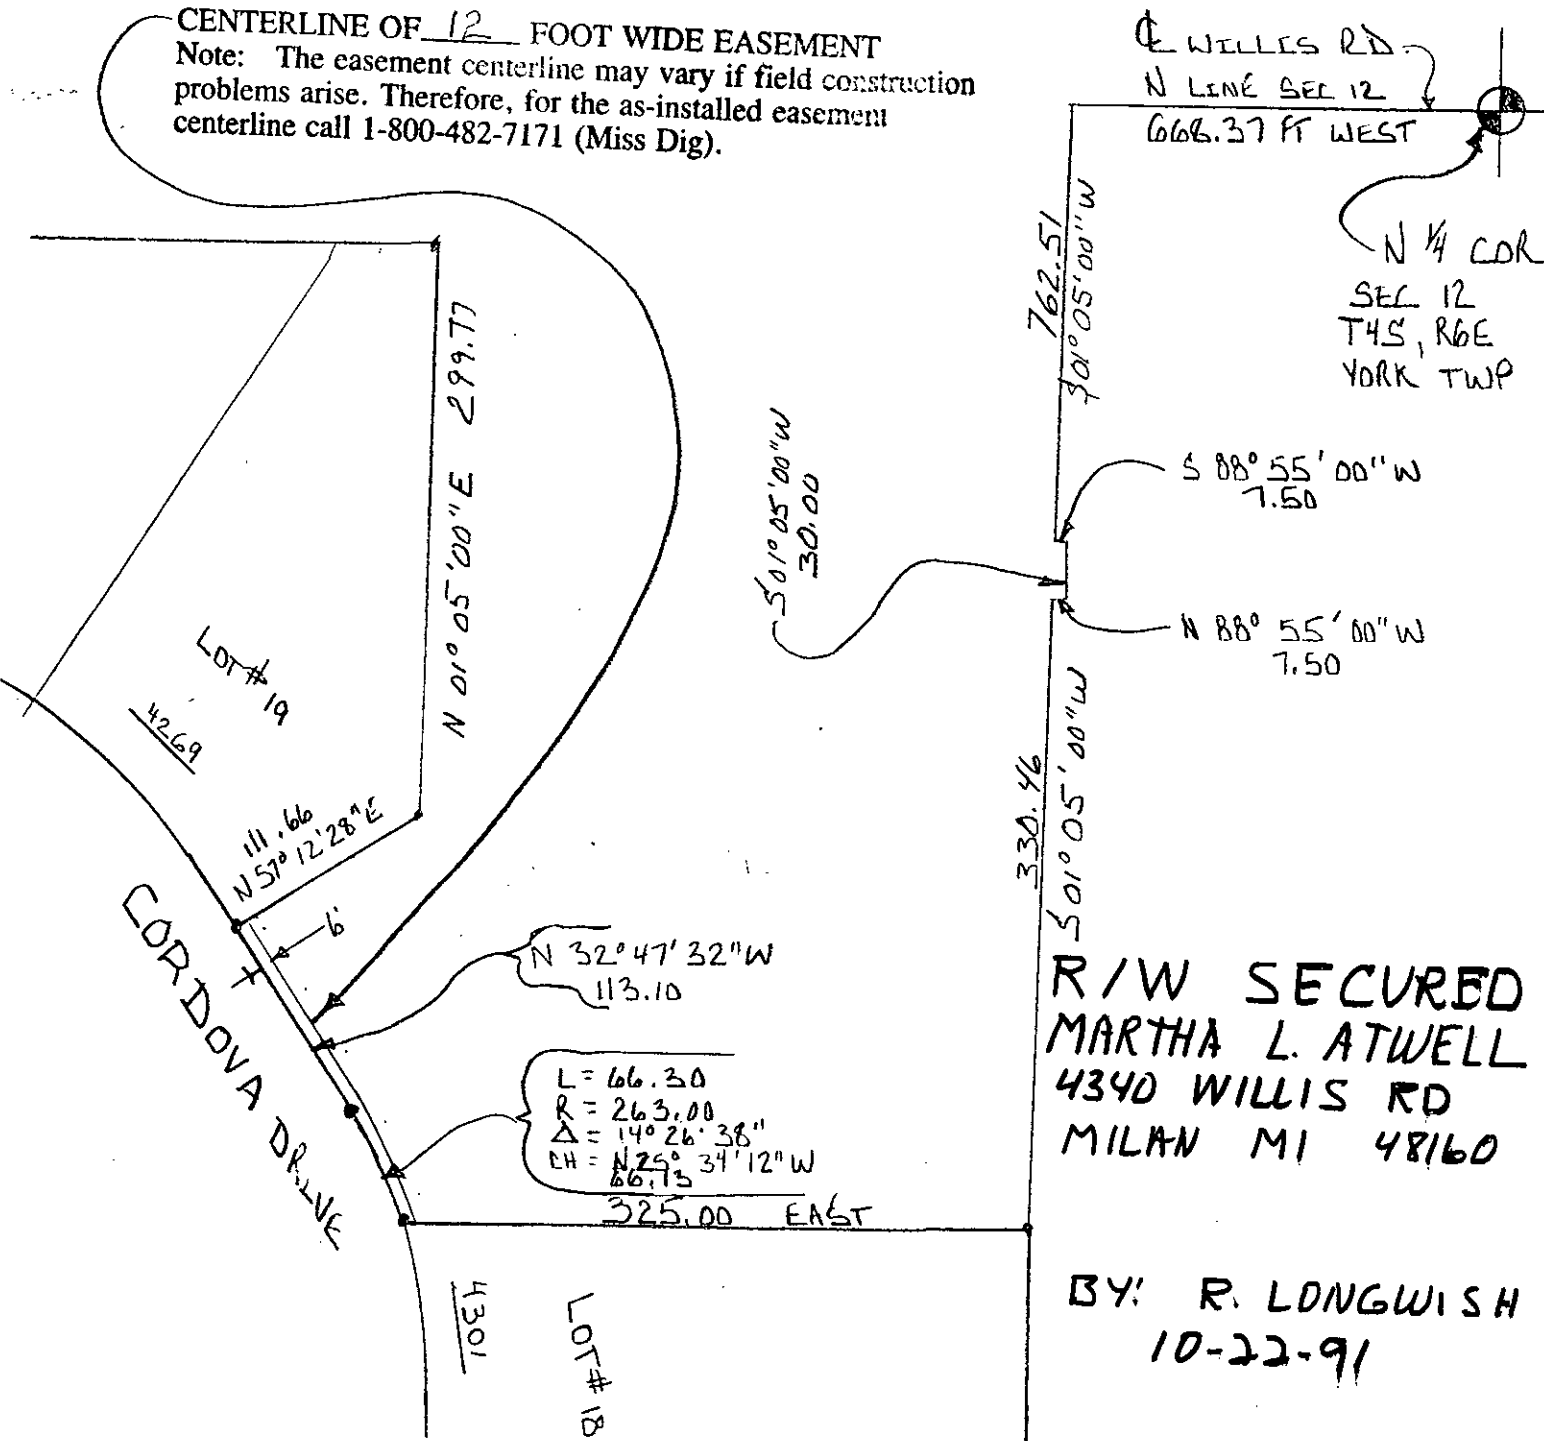 CENTERLINE OF 12 FOOT WIDE EASEMENT
Note: The easement centerline may vary if field construction
problems arise. Therefore, for the as-installed easement
centerline call 1-800-482-7171 (Miss Dig).
℄ WILLIS RD
N LINE SEC 12
668.37 FT WEST
N 1/4 COR
SEC 12
T4S, R6E
YORK TWP
762.51
S01° 05' 00" W
S 88° 55' 00" W
7.50
S 01° 05' 00" W
30.00
N 88° 55' 00" W
7.50
330.46
S 01° 05' 00" W
N 01° 05' 00" E 299.77
LOT # 19
4269
111.66
N 57° 12' 28" E
6'
CORDOVA DRIVE
N 32° 47' 32" W
113.10
L = 66.30
R = 263.00
Δ = 14° 26' 38"
CH = N 25° 34' 12" W
66.13
325.00 EAST
4301
LOT # 18
R/W SECURED
MARTHA L. ATWELL
4340 WILLIS RD
MILAN MI 48160
BY: R. LONGWISH
10-22-91